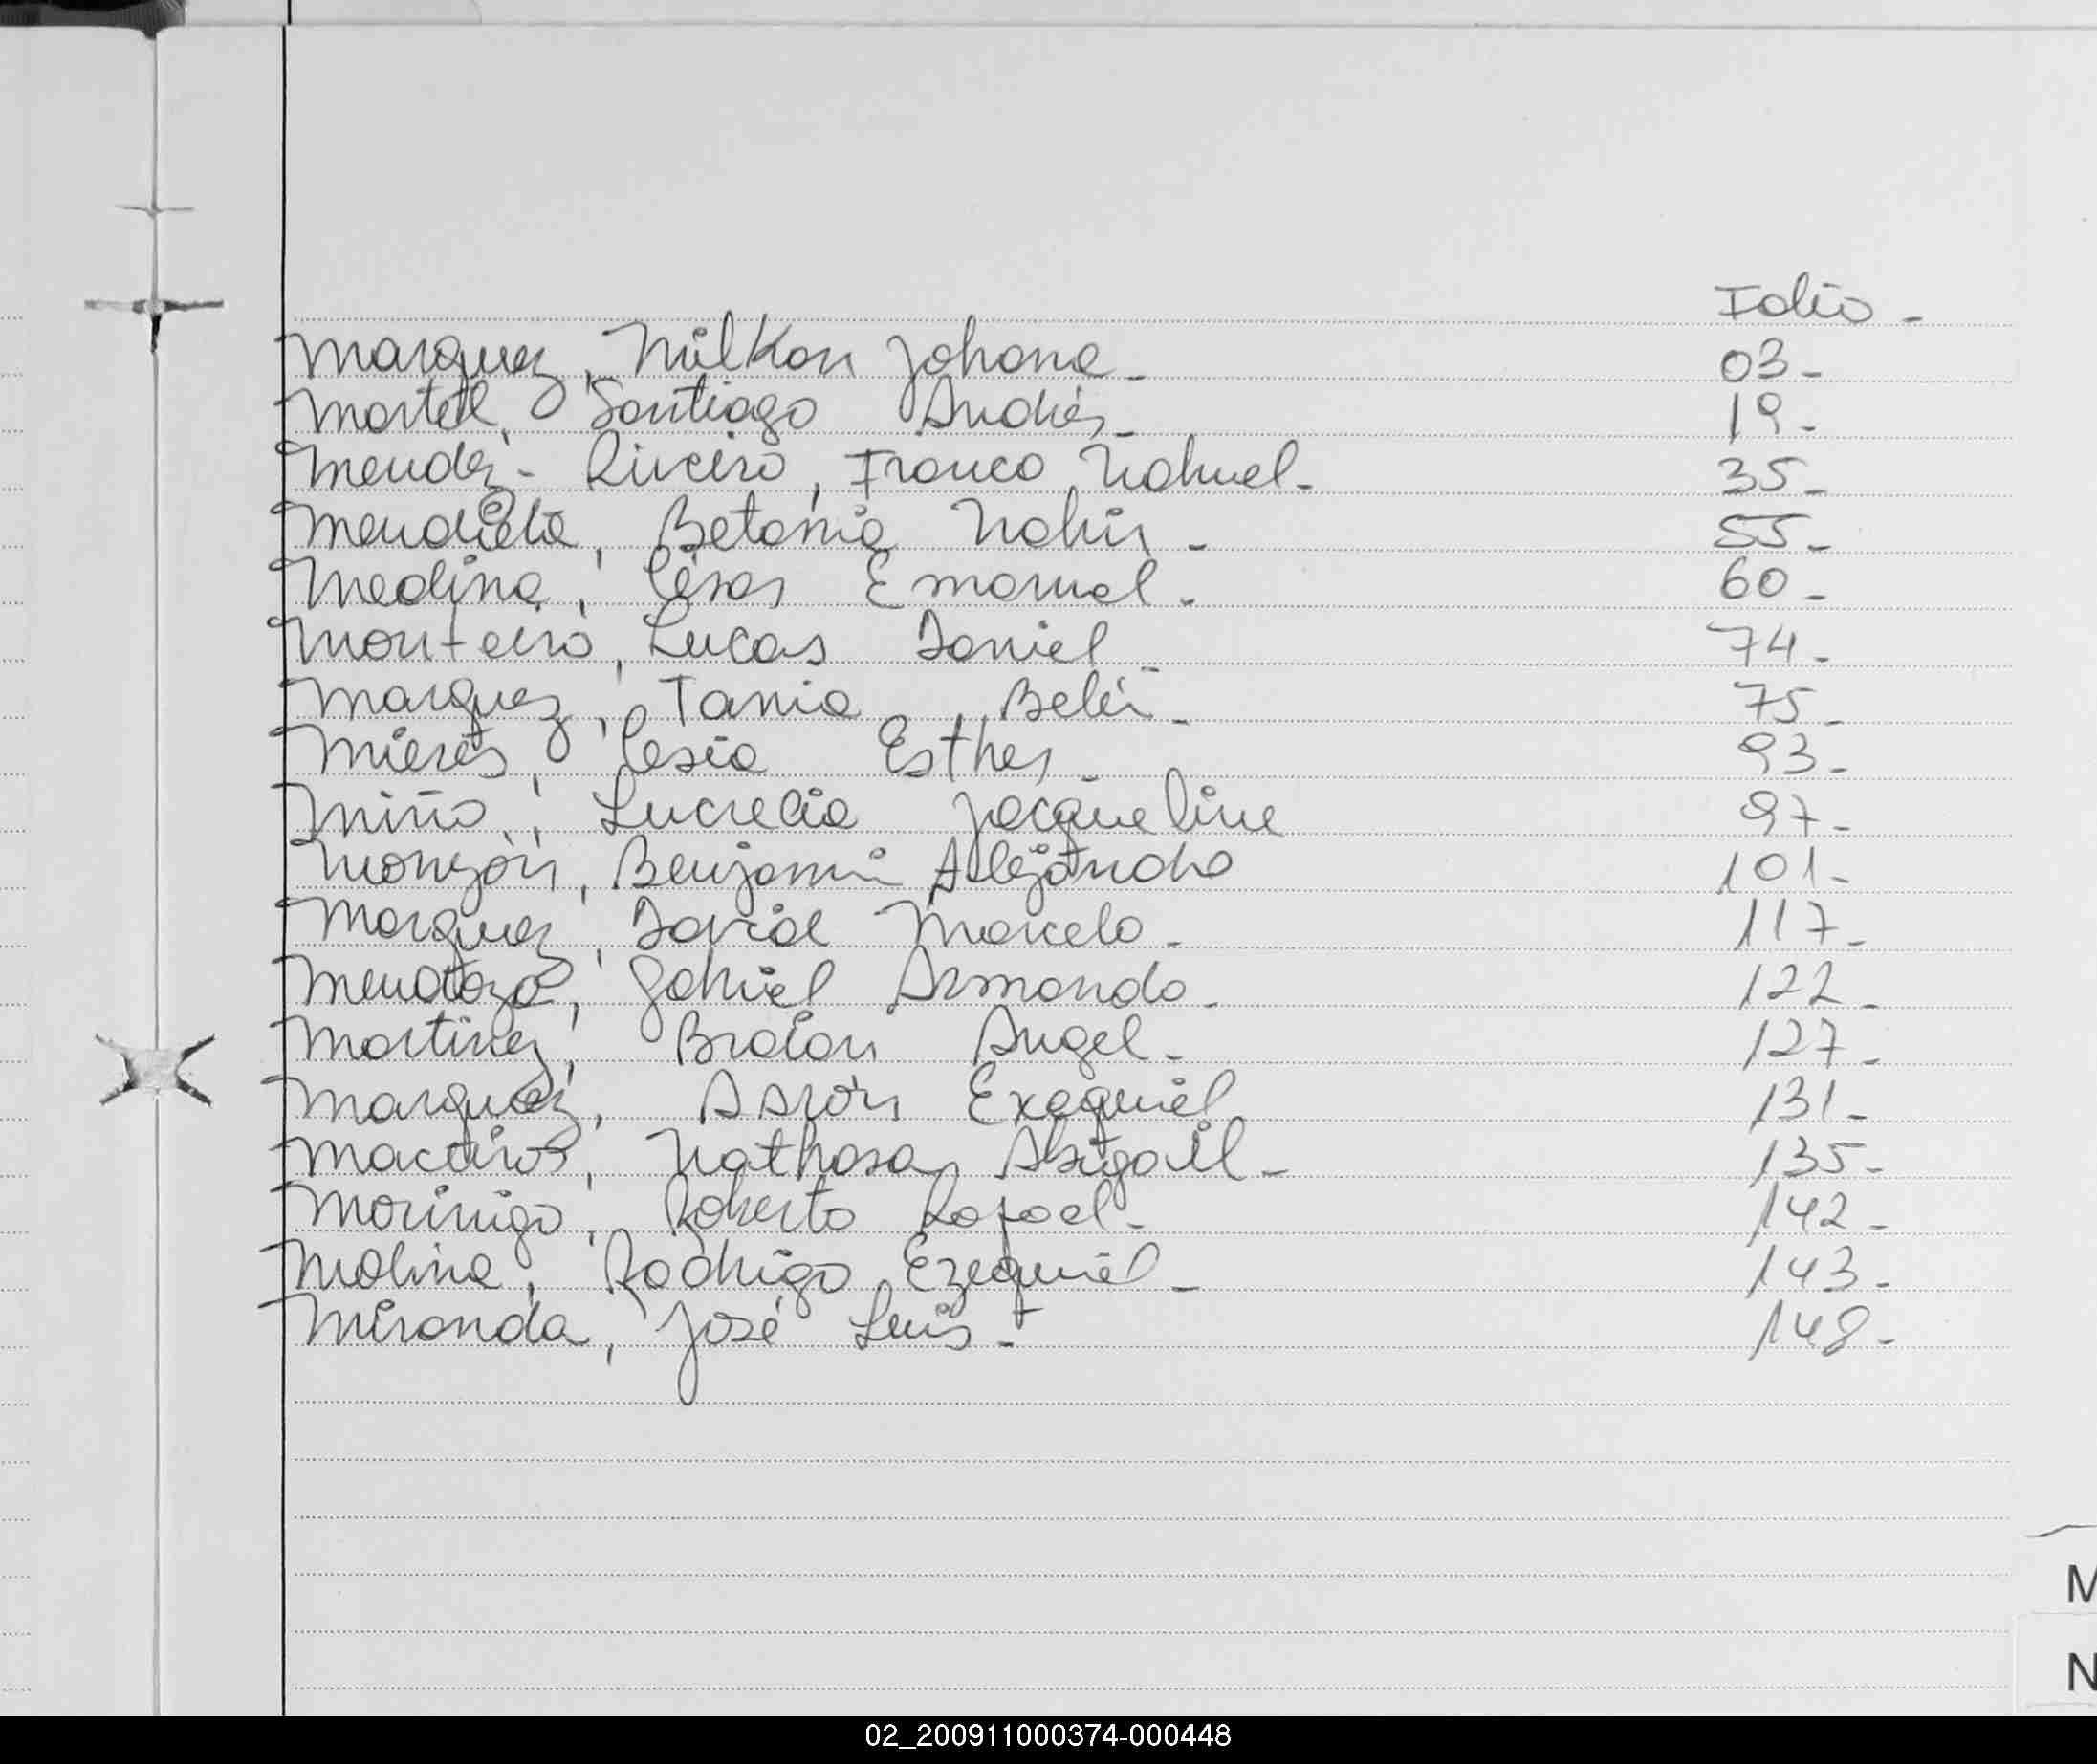 Folio -
Marquez, Milkon Johana - 03 -
Martel, Santiago Andrés - 19 -
Mendez - Riveiro, Franco Nahuel - 35 -
Mendieta, Betania Nahir - 55 -
Medina, César Emanuel - 60 -
Monteiro, Lucas Daniel - 74 -
Marquez, Tania Belén - 75 -
Mieres, Cesia Esther - 93 -
Miño, Lucrecia Jacqueline 97 -
Monzón, Benjamin Alejandro 101 -
Marquez, David Marcelo - 117 -
Mendoza, Gabriel Armando - 122 -
Martinez, Braian Angel - 127 -
Marquez, Aarón Exequiel 131 -
Abigail - 135 -
Morinigo, Roberto Rafael - 142 -
Molina, Rodrigo Ezequiel - 143 -
Miranda, José Luis - 148 -
M
N
02_200911000374-000448